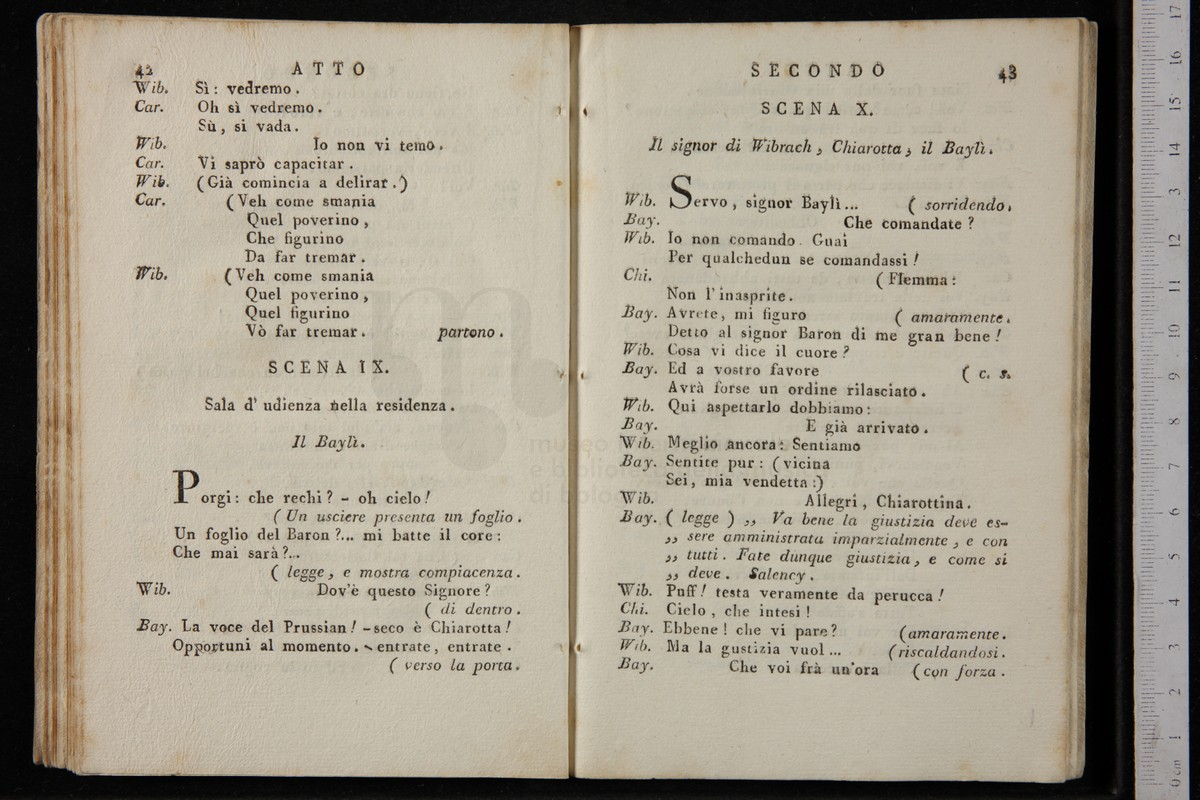 42 ATTO
Wib. Sì : vedremo .
Car. Oh sì vedremo .
Sù , si vada .
Wib. Io non vi temo .
Car. Vi saprò capacitar .
Wib. ( Già comincia a delirar . )
Car. ( Veh come smania
Quel poverino ,
Che figurino
Da far tremar .
Wib. ( Veh come smania
Quel poverino ,
Quel figurino
Vò far tremar . partono .
SCENA IX.
Sala d' udienza nella residenza .
Il Baylì .
Porgi : che rechi ? - oh cielo !
( Un usciere presenta un foglio .
Un foglio del Baron ?... mi batte il core :
Che mai sarà ?...
( legge , e mostra compiacenza .
Wib. Dov'è questo Signore ?
( di dentro .
Bay. La voce del Prussian ! - seco è Chiarotta !
Opportuni al momento . - entrate , entrate .
( verso la porta .
SECONDO 43
SCENA X.
Il signor di Wibrach , Chiarotta , il Baylì .
Wib. Servo , signor Baylì ... ( sorridendo .
Bay. Che comandate ?
Wib. Io non comando . Guai
Per qualchedun se comandassi !
Chi. ( Flemma :
Non l' inasprite .
Bay. Avrete , mi figuro ( amaramente .
Detto al signor Baron di me gran bene !
Wib. Cosa vi dice il cuore ?
Bay. Ed a vostro favore ( c. s.
Avrà forse un ordine rilasciato .
Wib. Qui aspettarlo dobbiamo :
Bay. E già arrivato .
Wib. Meglio ancora : Sentiamo
Bay. Sentite pur : ( vicina
Sei , mia vendetta :)
Wib. Allegri , Chiarottina .
Bay. ( legge ) ,, Va bene la giustizia deve es-
,, sere amministrata imparzialmente , e con
,, tutti . Fate dunque giustizia , e come si
,, deve . Salency .
Wib. Puff ! testa veramente da perucca !
Chi. Cielo , che intesi !
Bay. Ebbene ! che vi pare ? ( amaramente .
Wib. Ma la gustizia vuol ... ( riscaldandosi .
Bay. Che voi frà un'ora ( con forza .
museo
e biblio
di bolo
0 cm 1 2 3 4 5 6 7 8 9 10 11 12 13 14 15 16 17